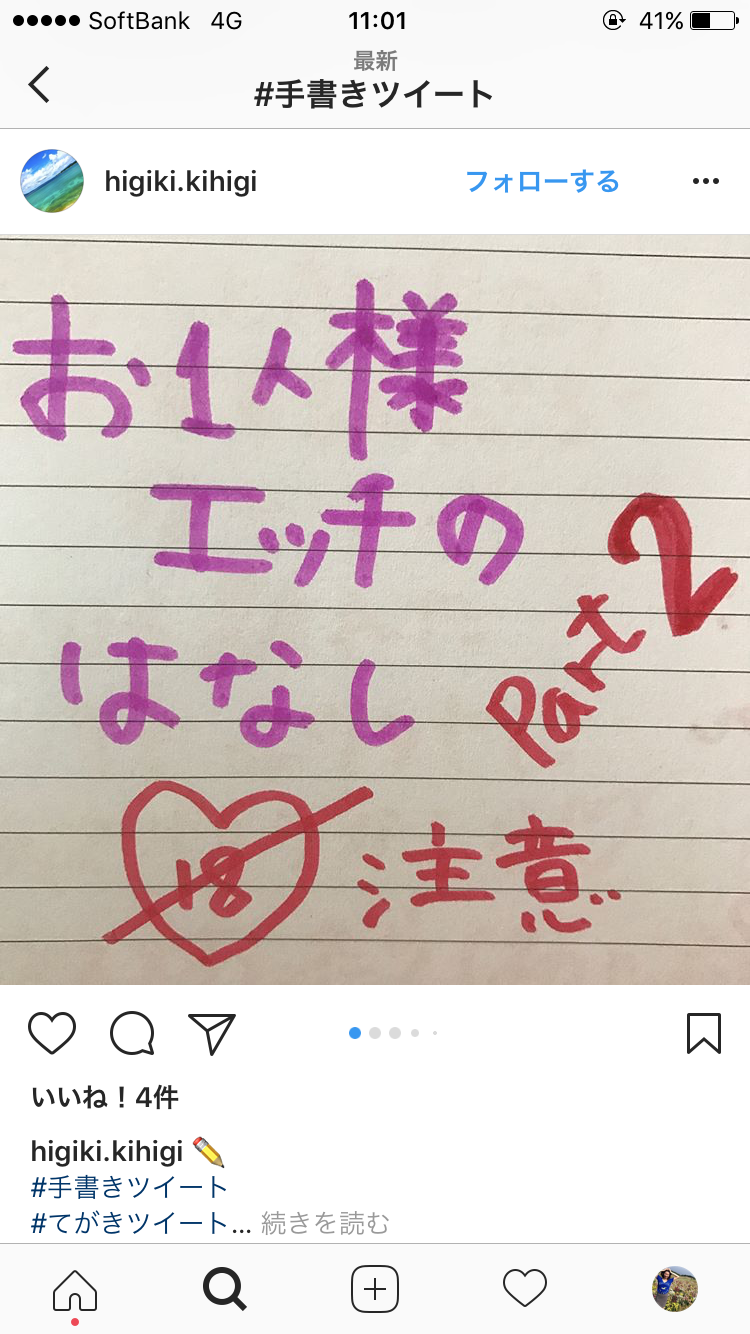 SoftBank 4G 11:01 41%
最新
#手書きツイート
higiki.kihigi フォローする
お1人様
エッチの
はなし
Part 2
18 注意
いいね！4件
higiki.kihigi
#手書きツイート
#てがきツイート... 続きを読む